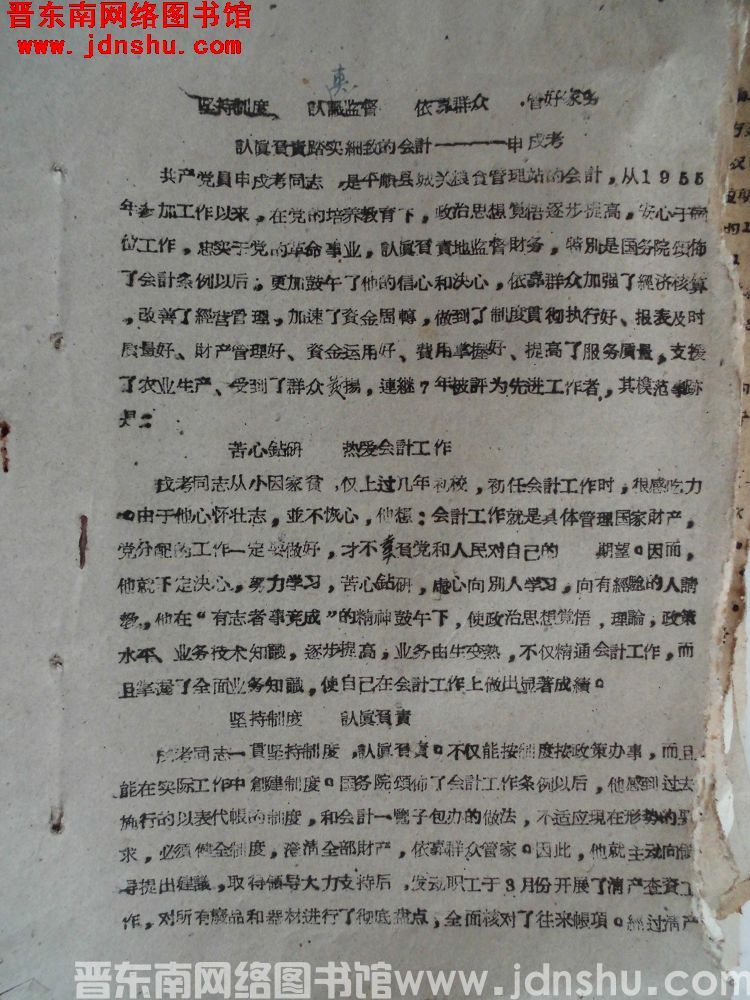 晋东南网络图书馆
www.jdnshu.com
真
坚持制度 认真监督 依靠群众 管好家务
認真負責踏实細致的会計———申成考
共产党員申成考同志,是平順县城关粮食管理站的会計,从1955
年参加工作以来,在党的培养教育下,政治思想覚悟逐步提高,安心于
位工作,忠实于党的革命事业,認真負責地监督財务,特別是国务院頒佈
了会計条例以后,更加鼓午了他的信心和决心,依靠群众加强了經济核算
,改善了經营管理,加速了資金周轉,做到了制度貫彻执行好、报表及时
质量好、財产管理好、資金运用好、費用掌握好、提高了服务质量,支援
了农业生产、受到了群众贊揚,連継7年被評为先进工作者,其模范事跡
是:
苦心鈷研 热爱会計工作
成考同志从小因家貧,仅上过几年礼校,初任会計工作时,很感吃力
。由于他心怀壮志,並不恢心,他想:会計工作就是具体管理国家財产,
党分配的工作一定要做好,才不辜負党和人民对自己的 期望。因而,
他就下定决心,努力学习,苦心鈷研,虚心向別人学习,向有經驗的人請
教,他在“有志者事竟成”的精神鼓午下,使政治思想覚悟,理論,政策
水平、业务技术知識,逐步提高,业务由生变熟,不仅精通会計工作,而
且掌握了全面业务知識,使自己在会計工作上做出显著成績。
坚持制度 認真負責
成考同志一貫坚持制度,認真負責。不仅能按制度按政策办事,而且
能在实际工作中創建制度。国务院頒佈了会計工作条例以后,他感到过去
施行的以表代帳的制度,和会計一覽子包办的做法,不适应現在形势的要
求,必須健全制度,澄清全部財产,依靠群众管家。因此,他就主动向領
导提出建議,取得領导大力支持后,发动职工于3月份开展了清产查資工
作,对所有廢品和器材进行了彻底盘点,全面核对了往来帳項。經过清产
晋东南网络图书馆www.jdnshu.com